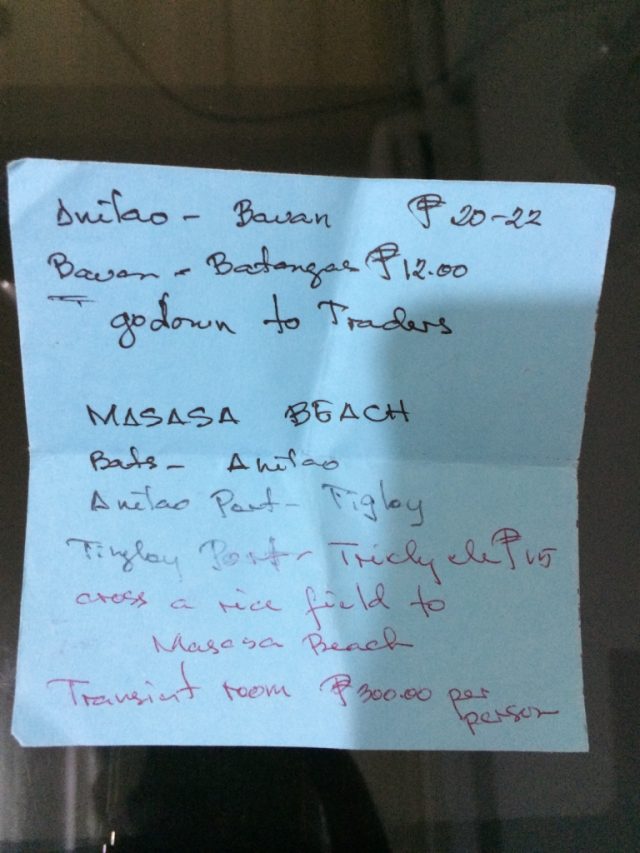 Anilao - Bauan ₱ 20-22
Bauan - Batangas ₱12.00
godown to Traders
MASASA BEACH
Bats - Anilao
Anilao Port - Tigloy
Tingloy Port - Tricycle ₱15
cross a rice field to
Masasa Beach
Transient room ₱300.00 per
person